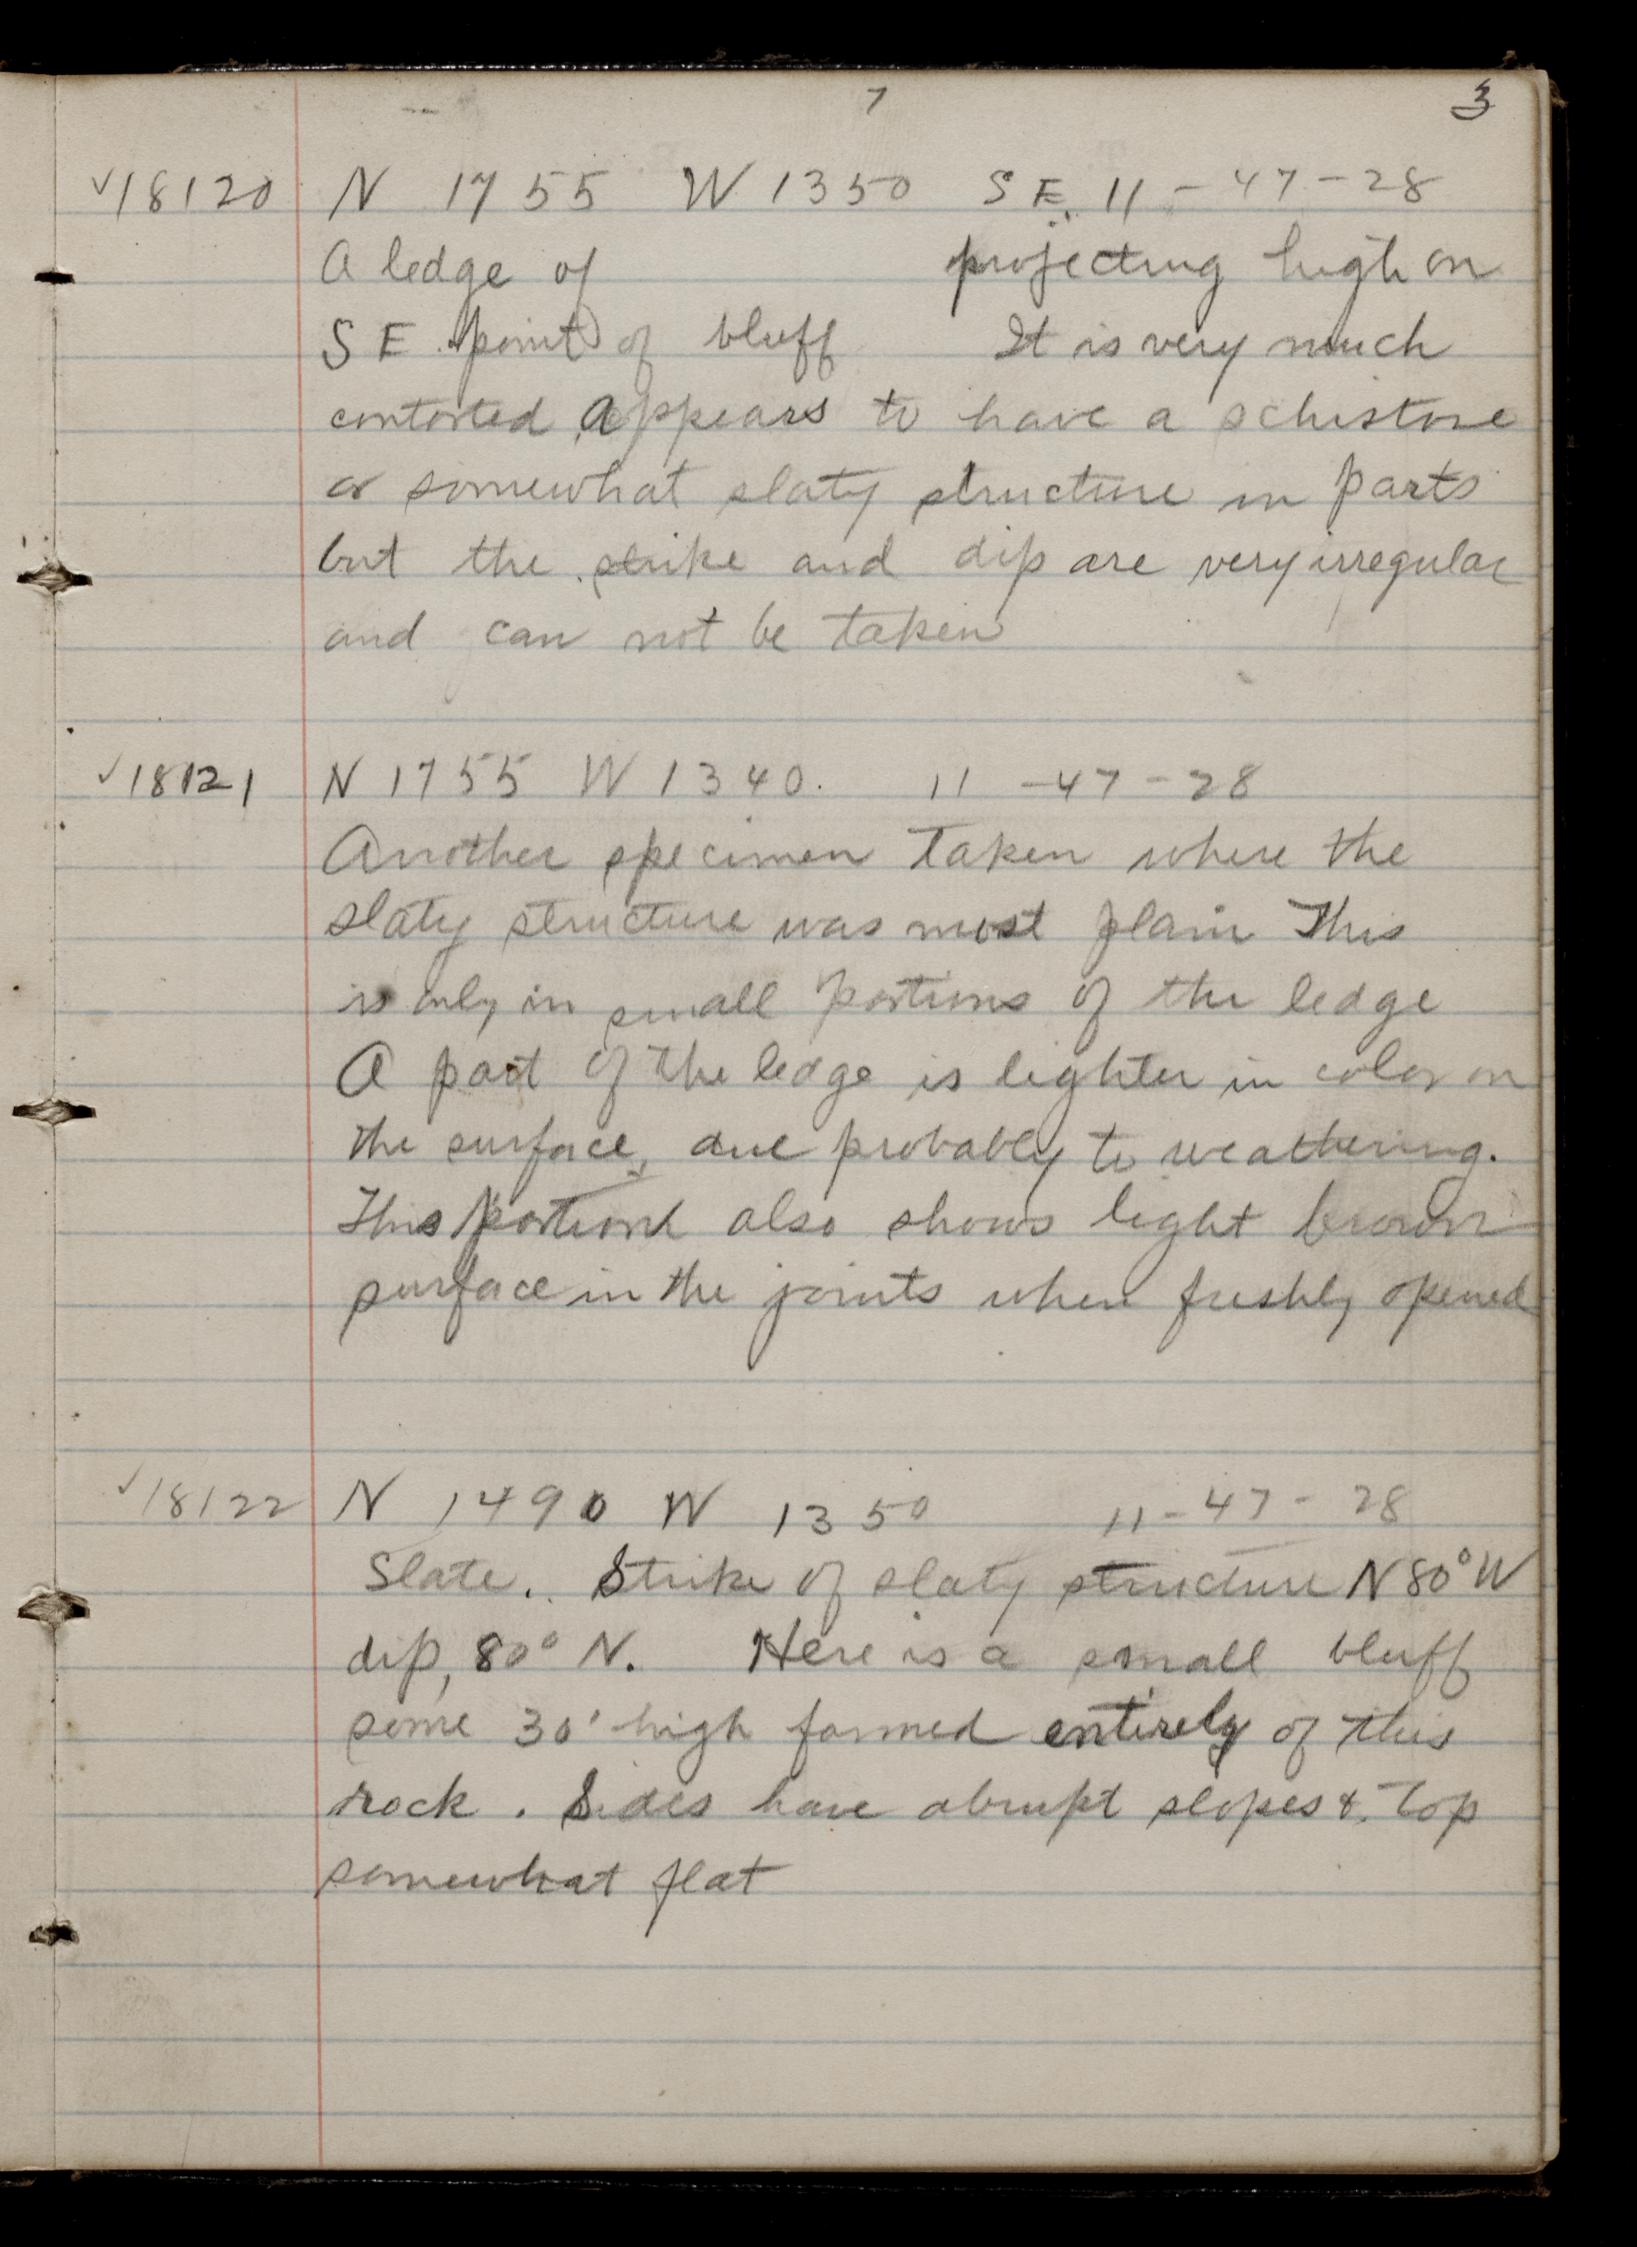 7 3
✓18120 N 1755 W 1350 SE. 11-47-28
A ledge of projecting high on
SE point of bluff It is very much
contorted, Appears to have a schistose
or somewhat slaty structure in parts
but the strike and dip are very irregular
and can not be taken
✓18121 N 1755 W 1340. 11-47-28
Another specimen taken where the
slaty structure was most plain This
is only in small portions of the ledge
A part of the ledge is lighter in color on
the surface, due probably to weathering.
This portion also shows light brown
surface in the joints when freshly opened
✓18122 N 1490 W 1350 11-47-28
Slate. Strike of slaty structure N80°W
dip, 80° N. Here is a small bluff
some 30' high formed entirely of this
rock. Sides have abrupt slopes & top
somewhat flat